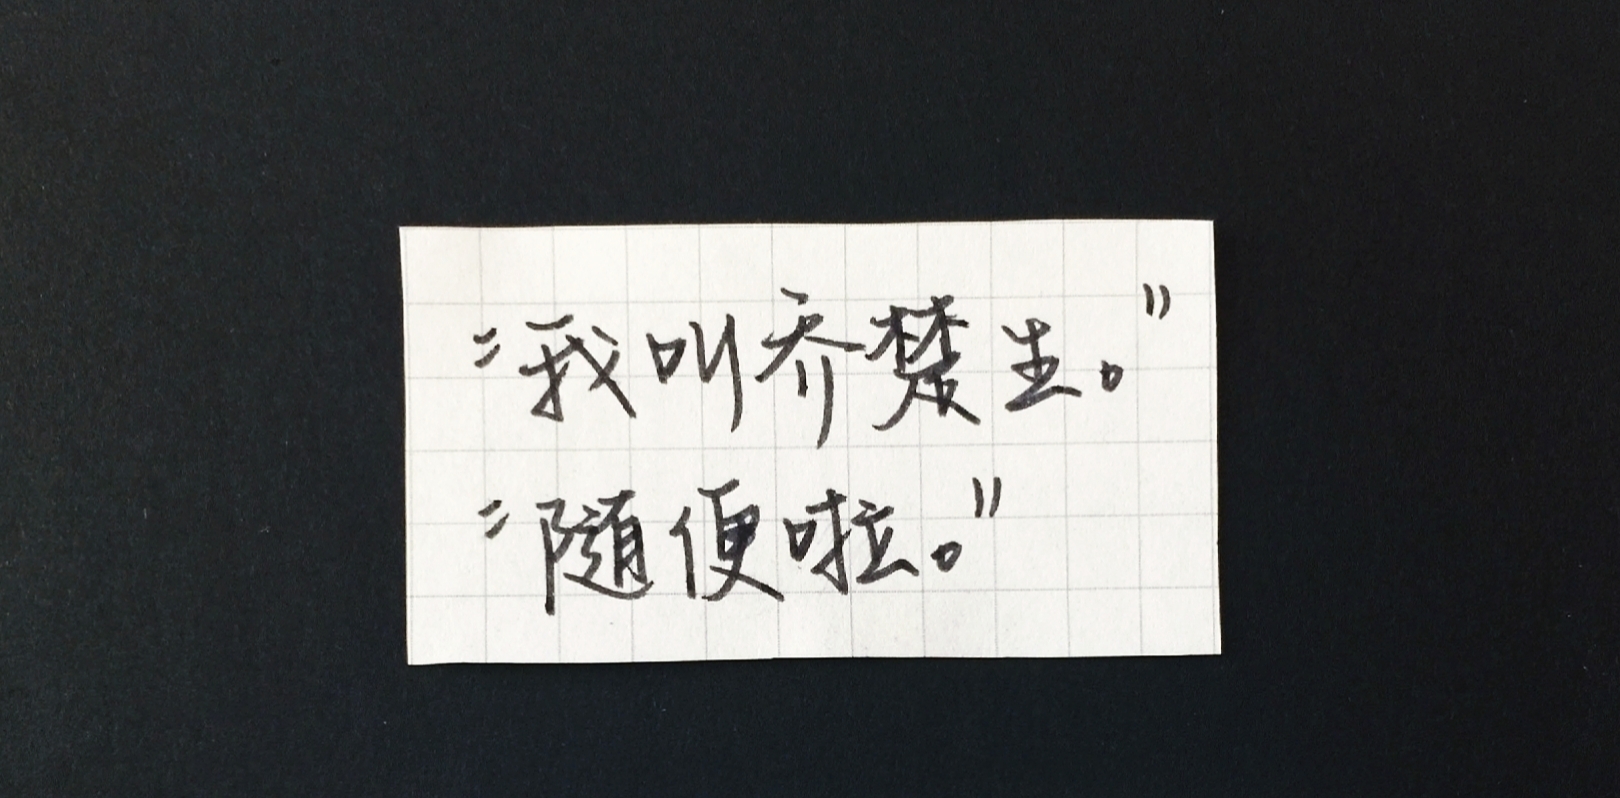 "我叫乔楚生。"
"随便啦。"